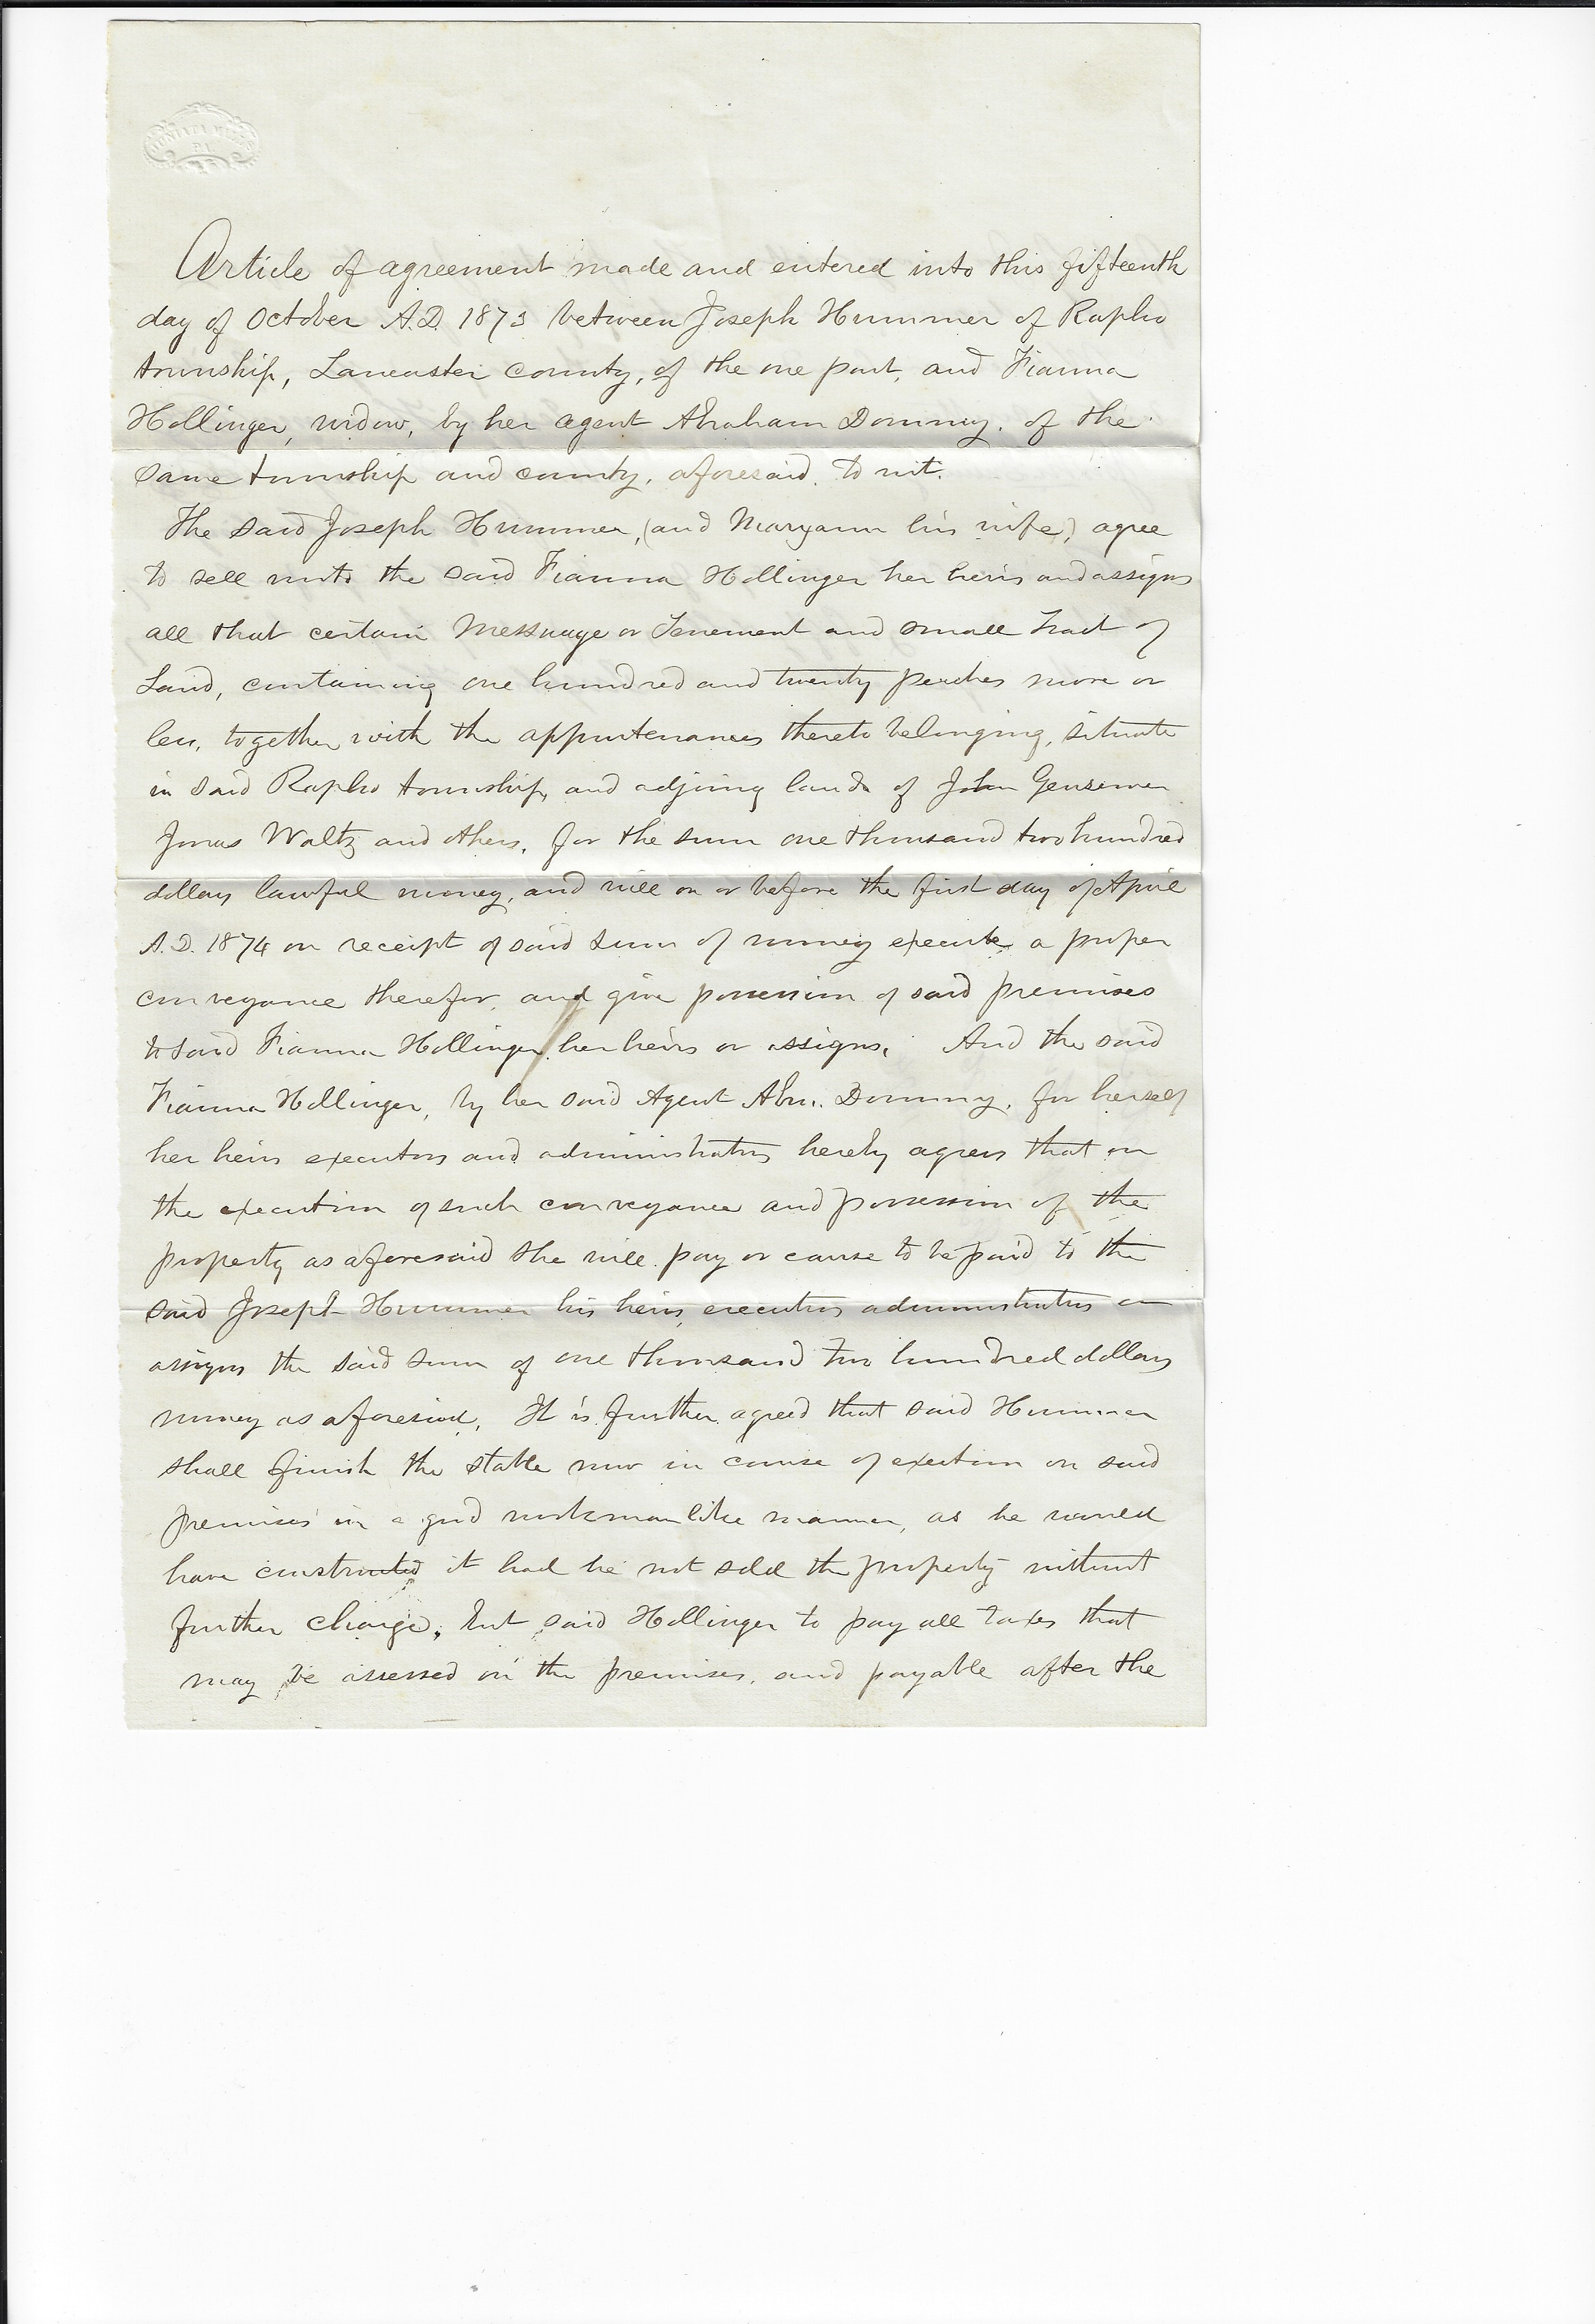 Article of agreement made and entered into this fifteenth
day of October A.D. 1873 between Joseph Hummer of Rapho
township, Lancaster county, of the one part, and Fianna
Hollinger, widow, by her agent Abraham Dommy. of the
same township and county, aforesaid, to wit.
The said Joseph Hummer, (and Maryann his wife,) agree
to sell unto the said Fianna Hollinger her heirs and assigns
all that certain Messuage or Tenement and small Tract of
Land, containing one hundred and twenty perches more or
less, together with the appurtenances thereto belonging, situate
in said Rapho township, and adjoing lands of John Gensemer
Jonas Waltz and others, for the sum one thousand two hundred
dollars lawful money, and will on or before the first day of April
A.D. 1874 on receipt of said sum of money execute a proper
conveyance therefor, and give possession of said premises
to said Fianna Hollinger, her heirs or assigns. And the said
Fianna Hollinger, by her said Agent Abm. Dommy, for herself
her heirs executors and administrators hereby agrees that on
the execution of such conveyance and possession of the
property as aforesaid she will pay or cause to be paid to the
said Joseph Hummer his heirs, executors administrators or
assigns the said sum of one thousand two hundred dollars
money as aforesaid. It is further agreed that said Hummer
shall finish the stable now in course of erection on said
premises in a good workmanlike manner, as he would
have constructed it had he not sold the property without
further charge, but said Hollinger to pay all taxes that
may be assessed on the premises, and payable after the